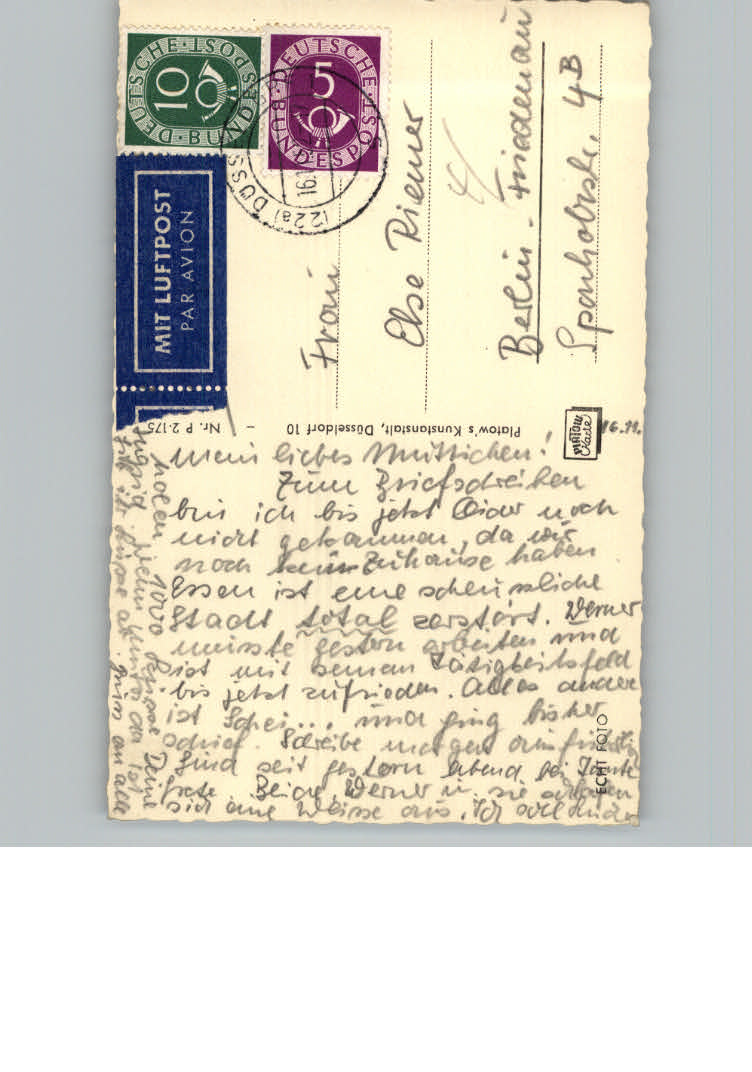 DEUTSCHE · BUNDESPOST
10
DEUTSCHE · BUNDESPOST
5
(22a) DÜSS
16.
MIT LUFTPOST
PAR AVION
Frau
Else Riemer
Berlin-Friedenau
Sponholzstr. 4B
Platow's Kunstanstalt, Düsseldorf 10 - Nr. P 2-175
PLATOW
Karte
ECHT FOTO
16.11.
Mein liebes Muttichen!
Zum Briefschreiben
bin ich bis jetzt leider noch
nicht gekommen, da wir
noch kein Zuhause haben
Essen ist eine scheussliche
Stadt total zerstört. Werner
musste gestern arbeiten und
ist mit seinem Tätigkeitsfeld
bis jetzt zufrieden. Alles andere
ist Schei... und ging bisher
schief. Schreibe morgen ausführlich
Sind seit gestern abend bei Tante
Grete. Beide, Werner u. sie
sich eine Weisse aus. Ich soll
holen 1000 Küsse Deine
Gruss an alle